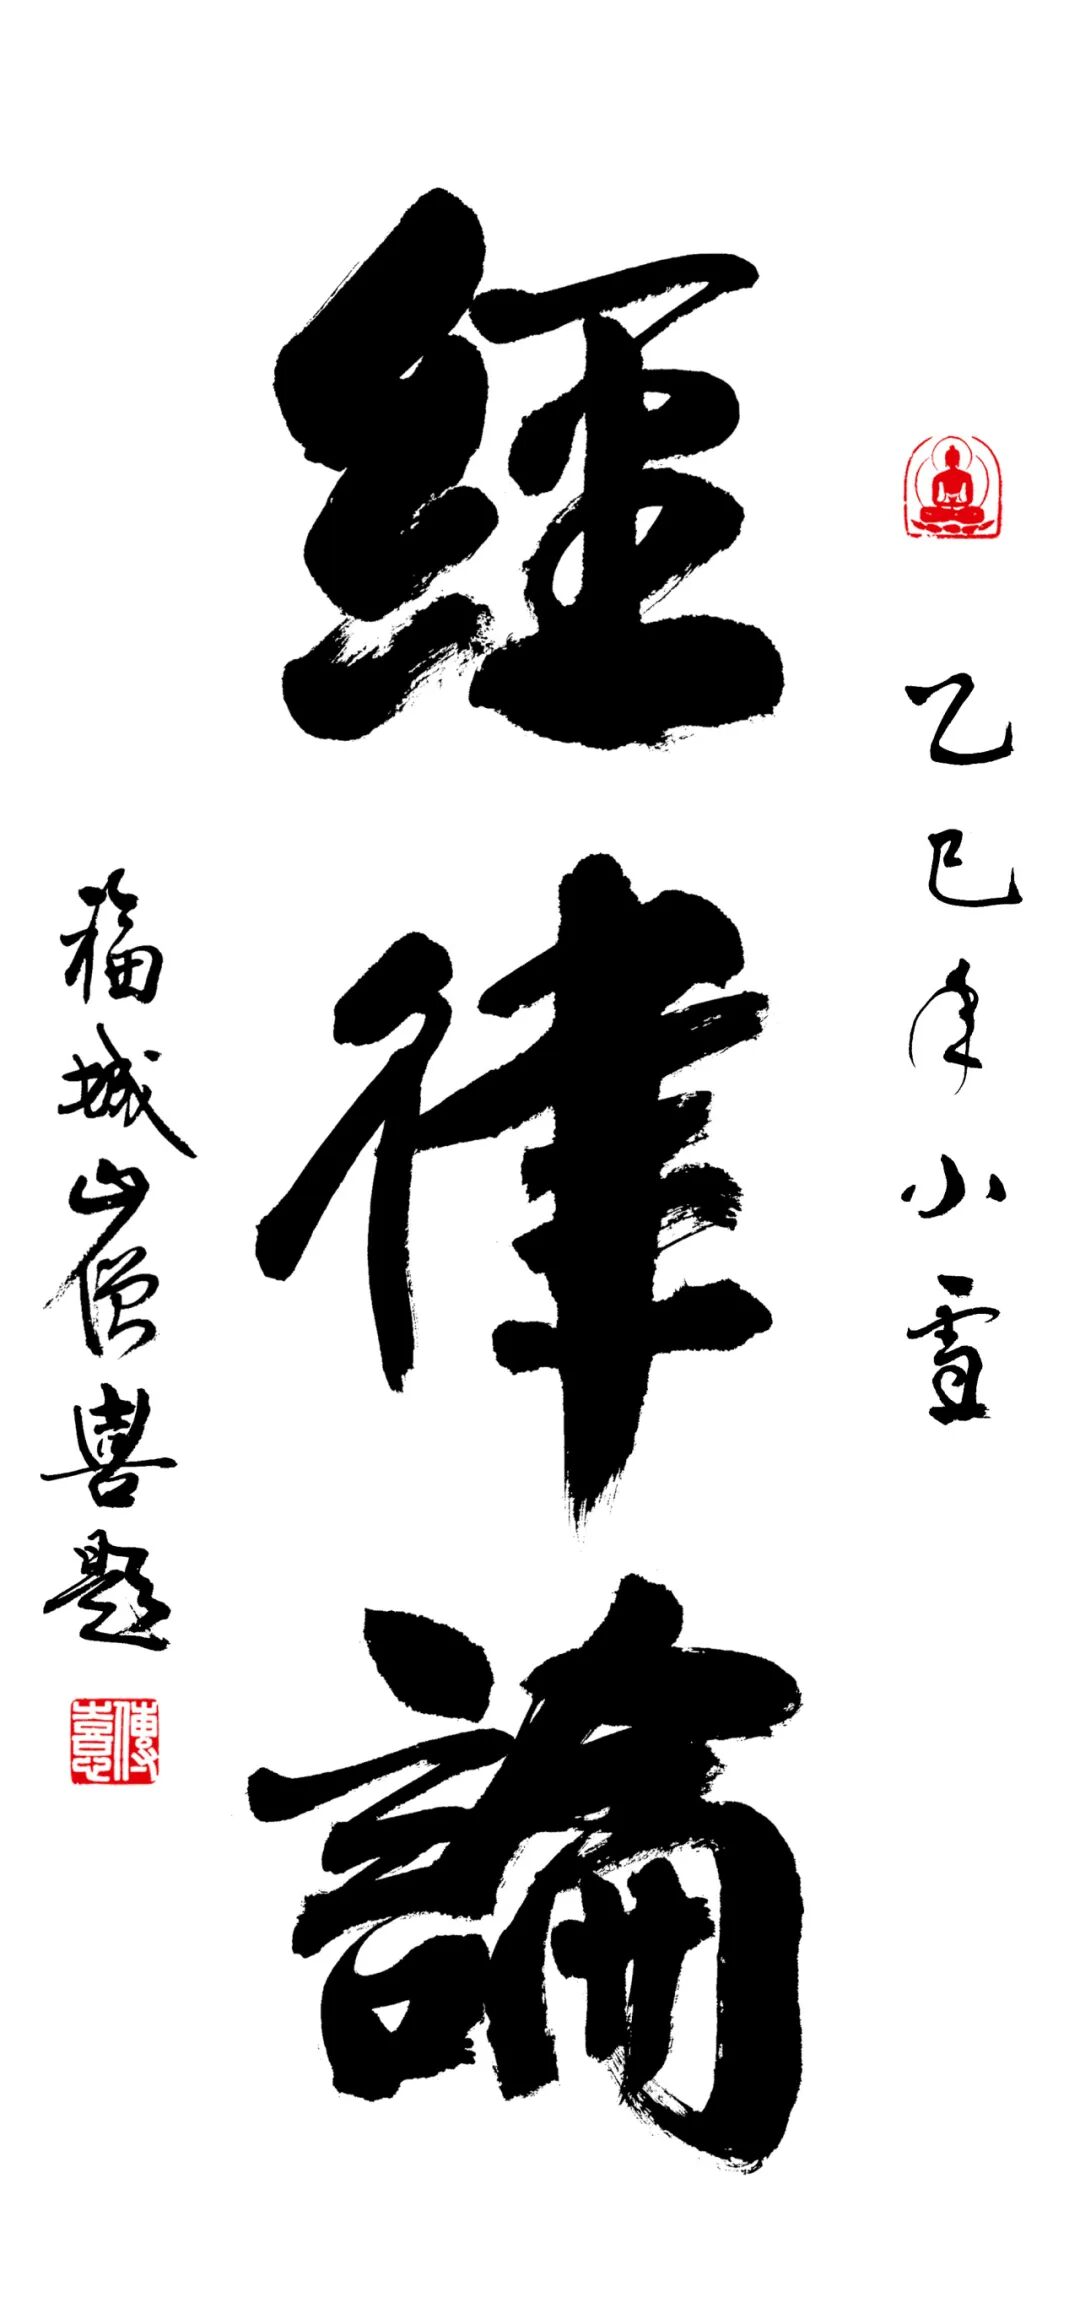 乙巳年小雪
經律論
福城山僧喜題
傳喜